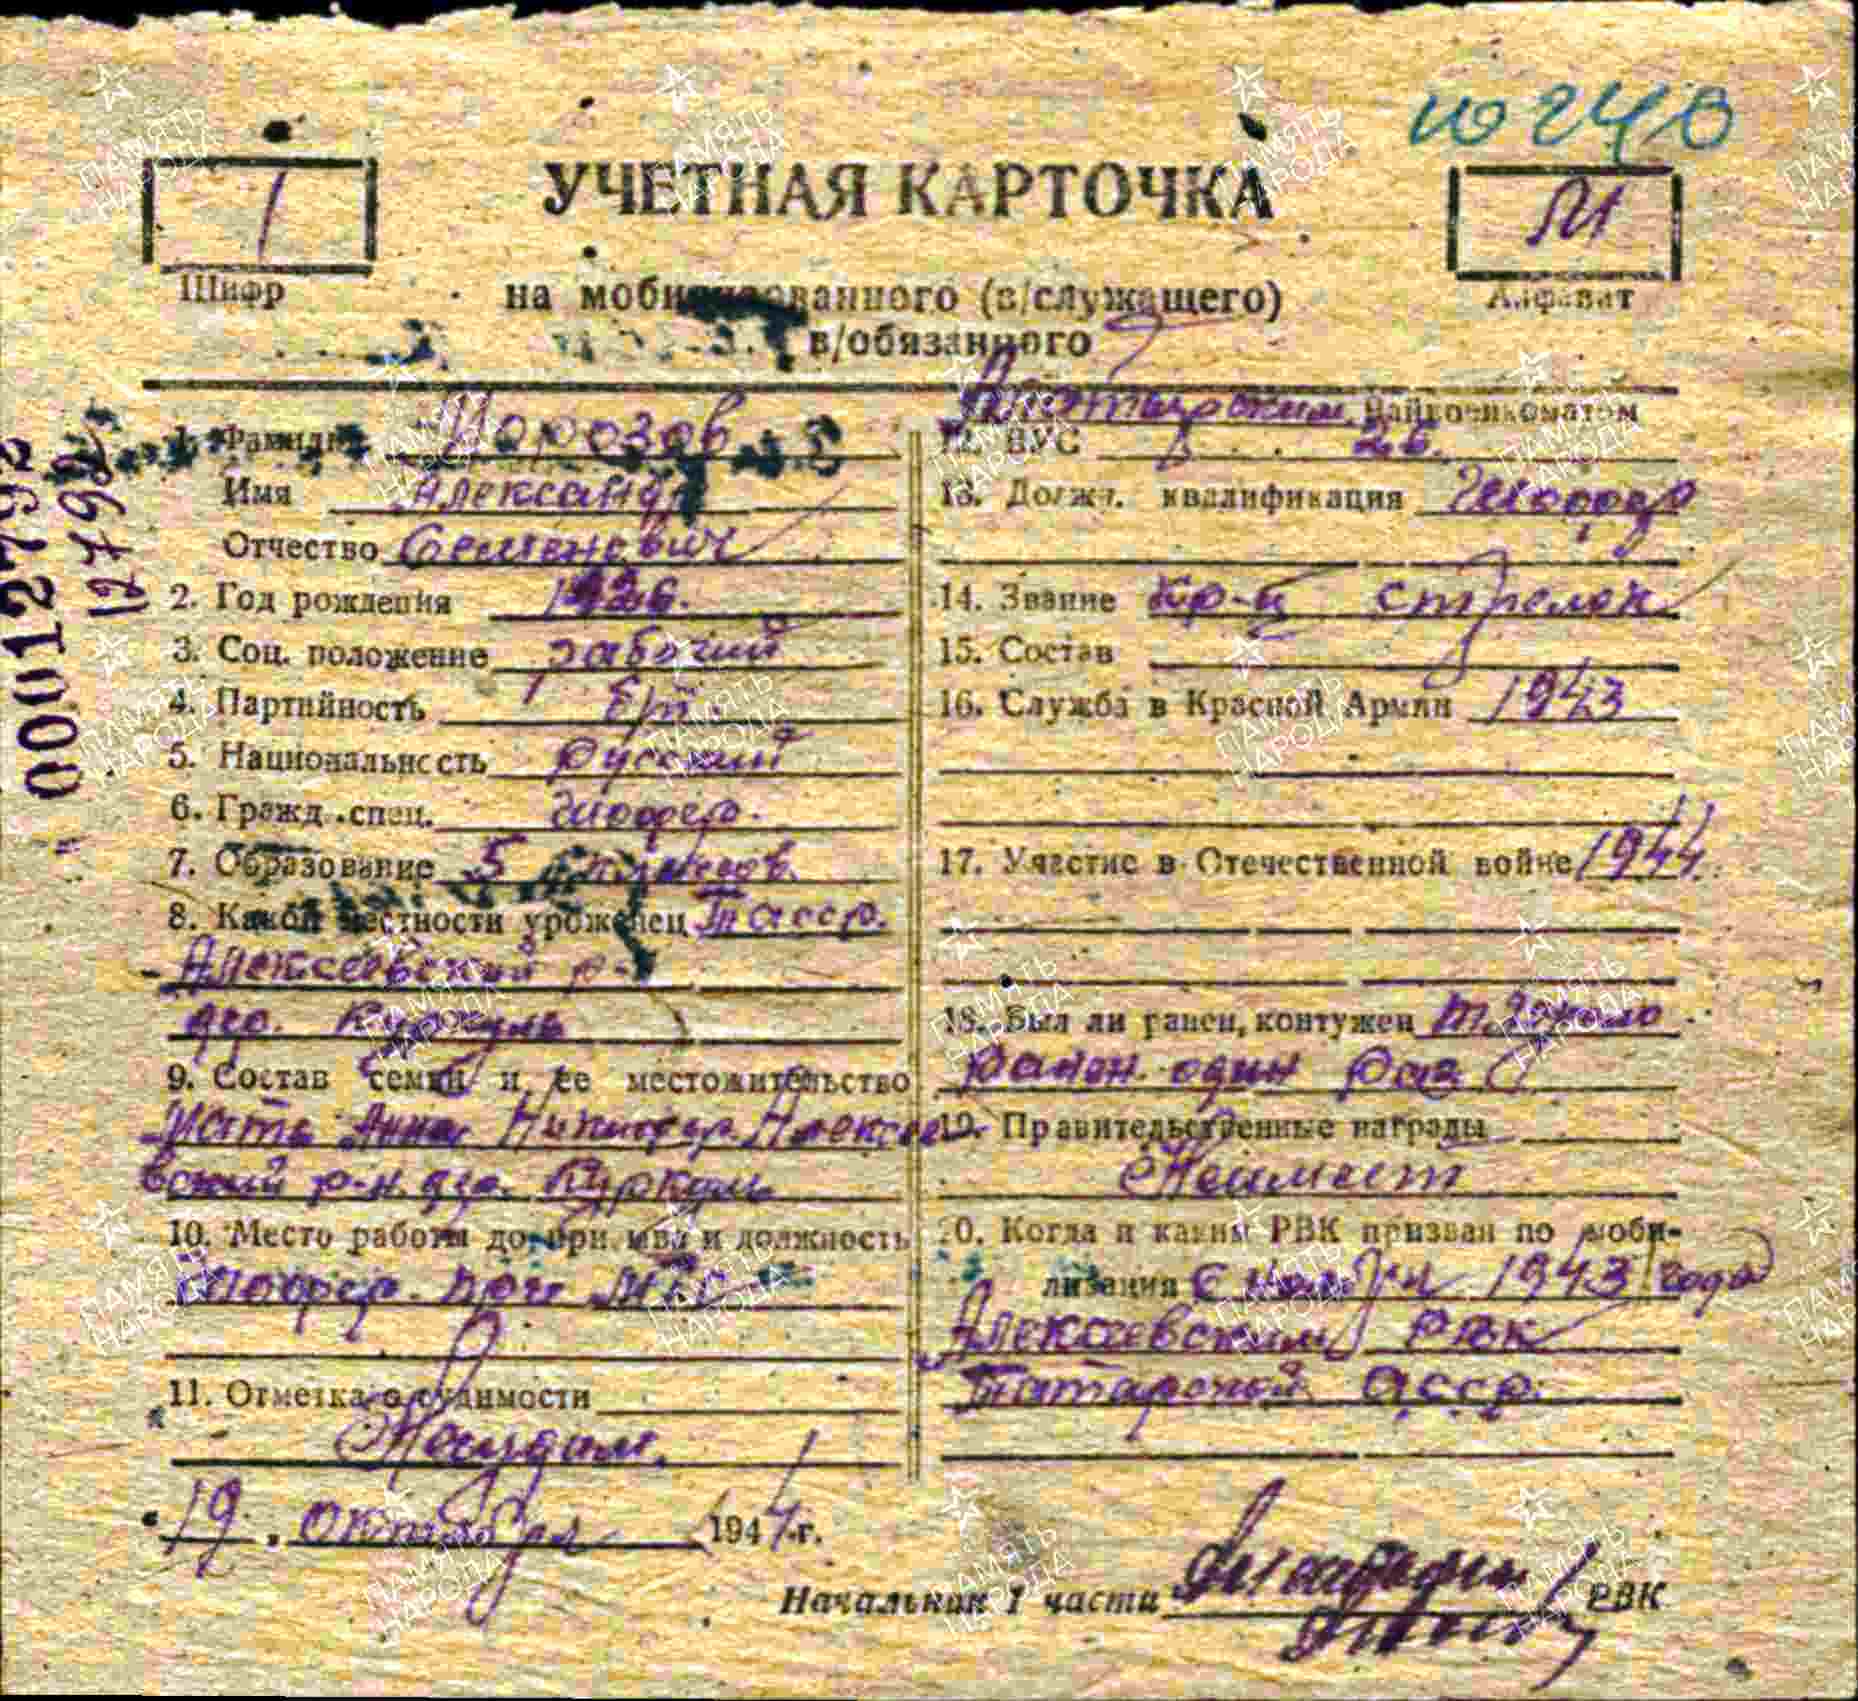 ю 240
УЧЕТНАЯ КАРТОЧКА
1
М
Шифр
Алфавит
на мобилизованного (в/служащего)
в/обязанного
00012792
12792
1. Фамилия Морозов
Имя Александр
Отчество Семенович
2. Год рождения 1926.
3. Соц. положение рабочий
4. Партийность б/п.
5. Национальность русский
6. Гражд. спец. шофер.
7. Образование 5 классов.
8. Какой местности уроженец Тасср.
Алексеевский р-
дер. Куркуль
9. Состав семьи и ее местожительство
Мать Анна Никифор. Алексее
вский р-н. дер. Куркуль
10. Место работы до призыва и должность
шофер. при МТС
11. Отметка о судимости
Несудим.
"19" октября 1944 г.
Райвоенкоматом
12. ВУС 26.
13. Должн. квалификация Шофер
14. Звание кр-ц стрелок
15. Состав
16. Служба в Красной Армии 1943
17. Участие в Отечественной войне 1944
18. Был ли ранен, контужен
ранен один раз
19. Правительственные награды
Неимеет
20. Когда и каким РВК призван по моби-
лизации с ноября 1943 года
Алексеевским РВК
Татарской асср.
Начальник 1 части РВК
ПАМЯТЬ НАРОДА